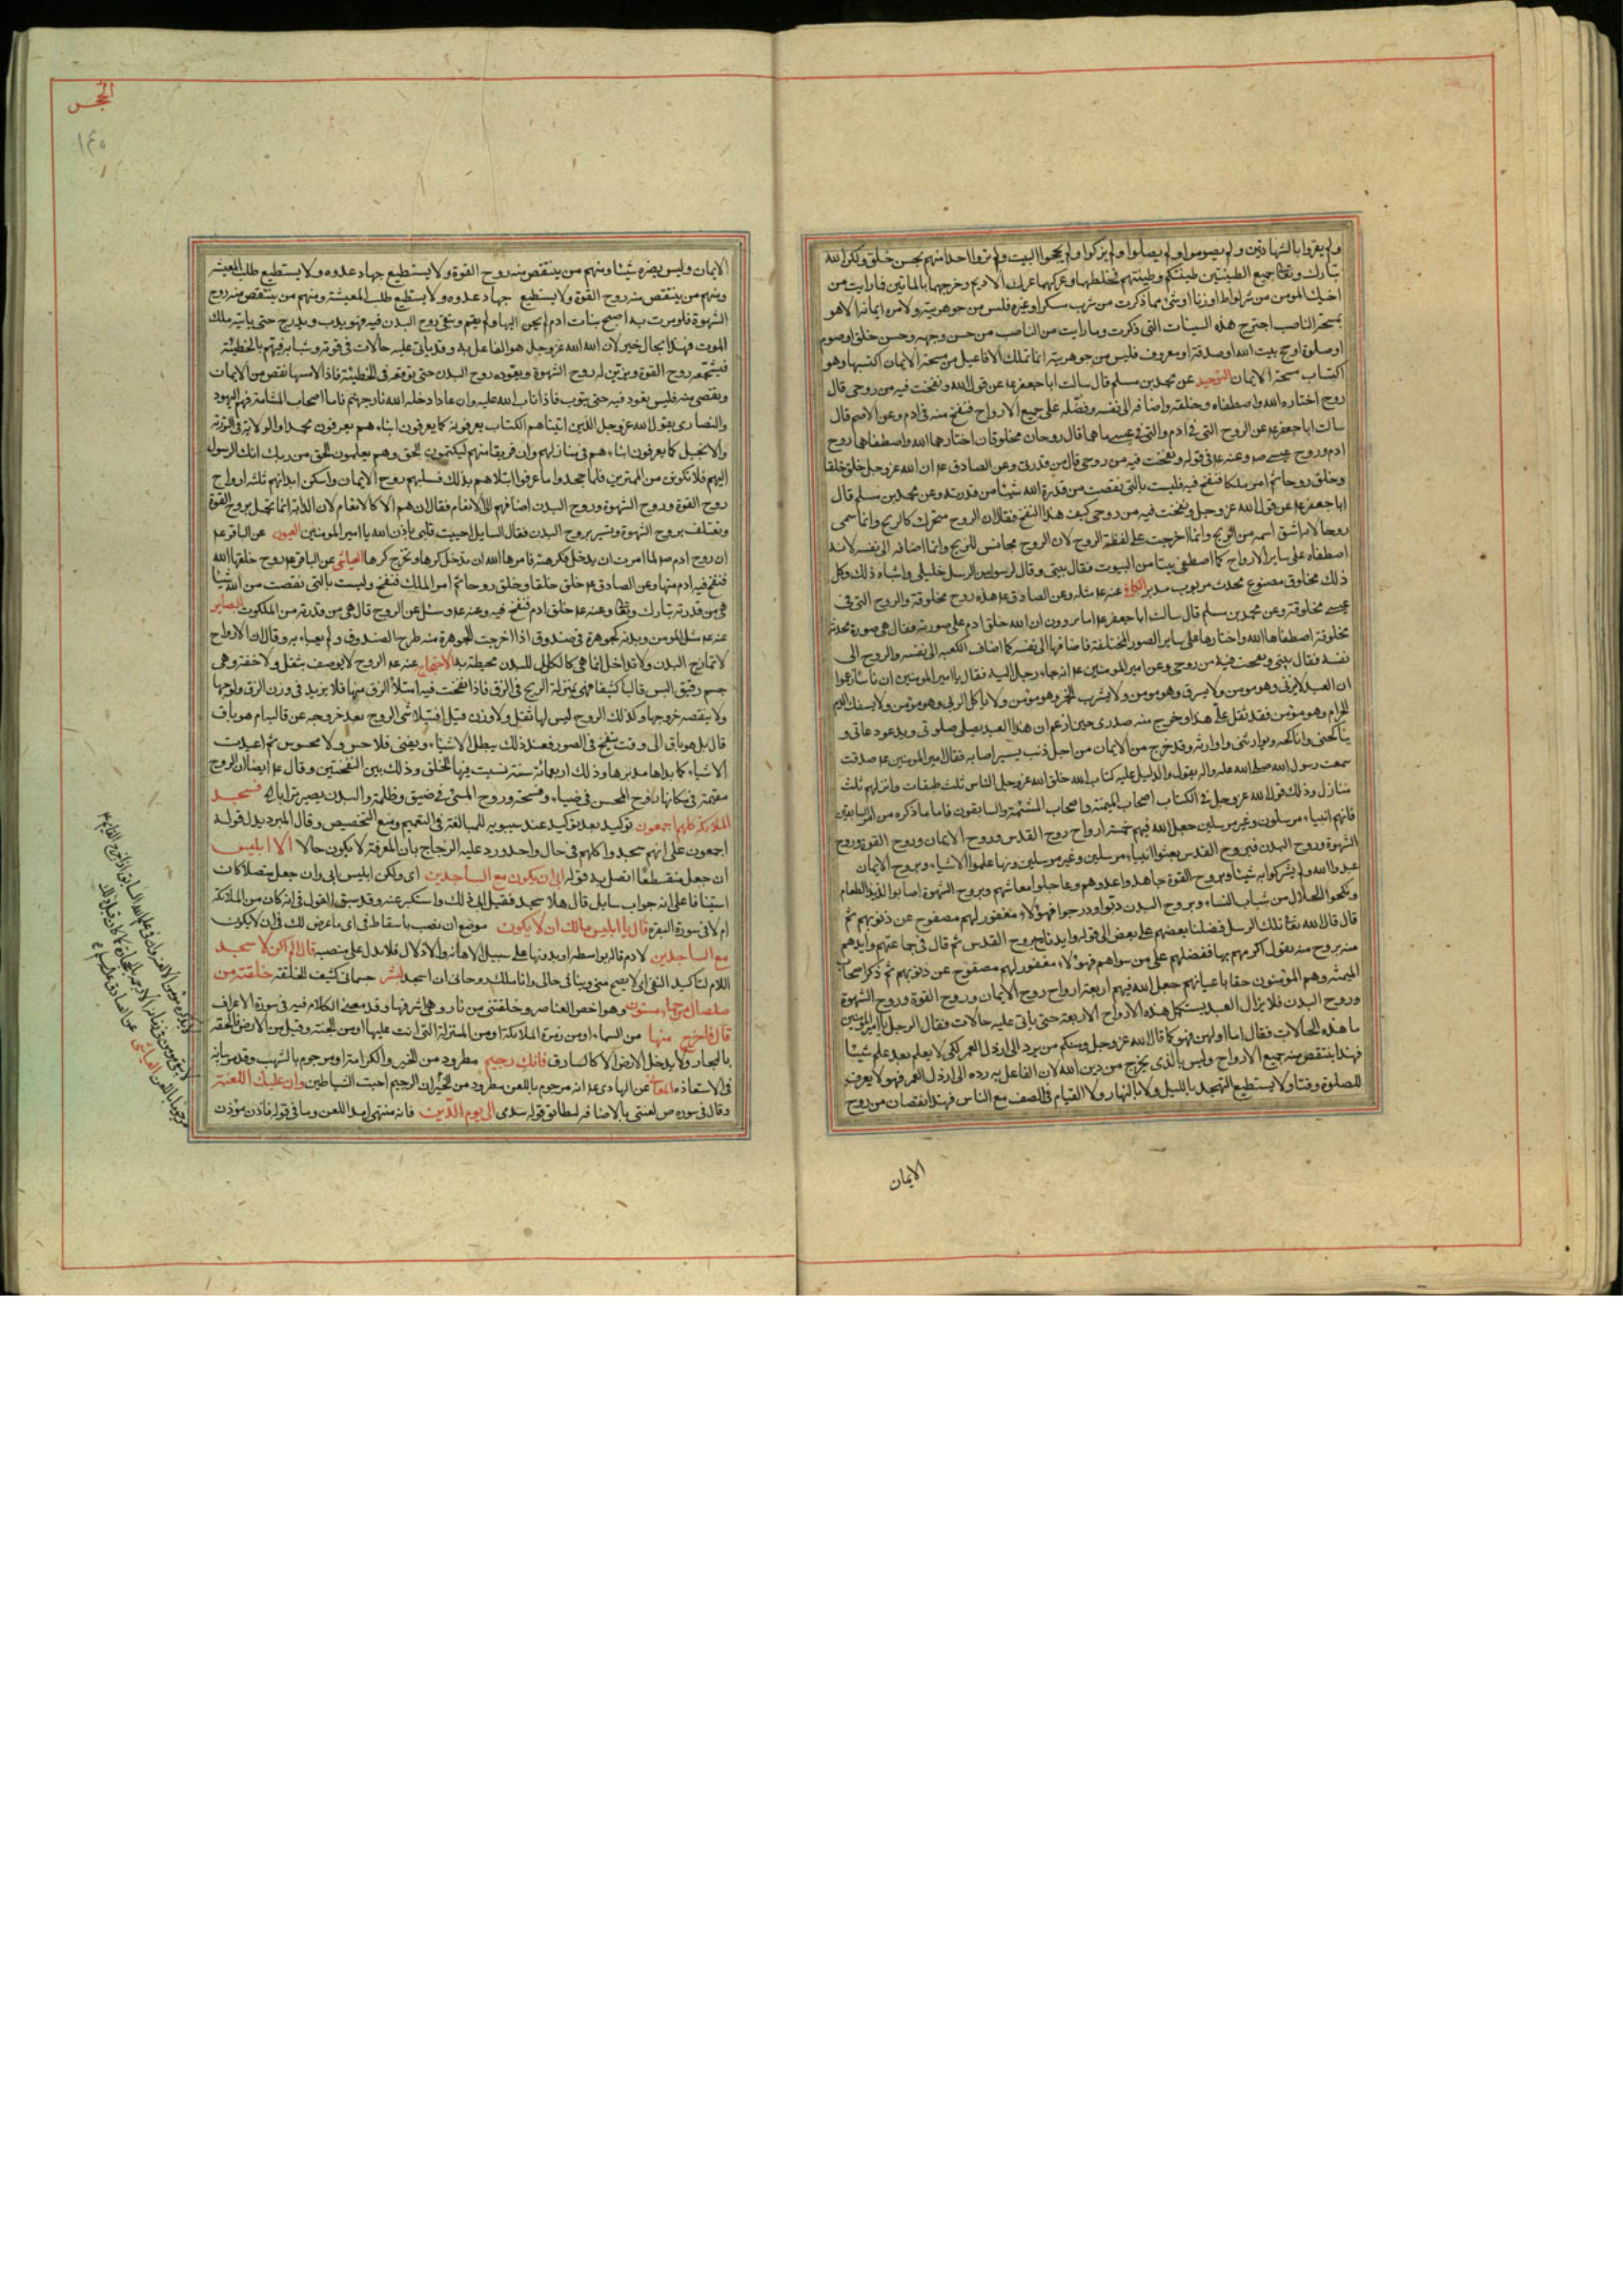 ولم يقروا بالشهادتين ولم يصوموا ولم يصلوا ولم يزكوا ولم يحجوا البيت ولم تروا احدا منهم بحسن خلق ولكن الله
تبارك وتعالى جميع الطينتين طينتكم وطينتهم فخلطهما وعركهما عرك الاديم ومزجهما بالمائين فما رايت من
اخيك المومن من شر لواط او زنا او شئ مما ذكرت من شرب مسكر او غيره فليس من جوهريته ولا من ايمانه انما هو
بمسحة الناصب اجترح هذه السيئات التى ذكرت وما رايت من الناصب من حسن وجهه وحسن خلق او صوم
او صلوة او حج بيت الله او صدقة او معروف فليس من جوهريته انما تلك الافاعيل من مسحة الايمان اكتسبها وهو
اكتساب مسحة الايمان التوحيد عن محمد بن مسلم قال سالت ابا جعفر عم عن قول الله ونفخت فيه من روحى قال
روح اختاره الله واصطفاه وخلقه واضافه الى نفسه وفضله على جميع الارواح فنفخ منه فى ادم وعن الاصم قال
سالت ابا جعفر عم عن الروح التى فى ادم والتى فى عيسى ما هما قال روحان مخلوقان اختارهما الله واصطفاهما روح
ادم وروح عيسى صم وعنه عم فى قوله ونفخت فيه من روحى قال من قدرتى وعن الصادق عم ان الله عز وجل خلق خلقا
وخلق روحا ثم امر ملكا فنفخ فيه فليست بالتى نقصت من قدرة الله شيئا من قدرته وعن محمد بن مسلم قال
ابا جعفر عم عن قول الله عز وجل ونفخت فيه من روحى كيف هذا النفخ فقال ان الروح متحرك كالريح وانما سمى
روحا لانه اشتق اسمه من الريح وانما اخرجت على لفظة الروح لان الروح مجانس للريح وانما اضافه الى نفسه لانه
اصطفاه على ساير الارواح كما اصطفى بيتا من البيوت فقال بيتى وقال لرسول من الرسل خليلى واشباه ذلك وكل
ذلك مخلوق مصنوع محدث مربوب مدبر الكافى عنه عم مثله وعن الصادق عم هذه روح مخلوقة والروح التى فى
عيسى مخلوقة وعن محمد بن مسلم قال سالت ابا جعفر عم عما يروون ان الله خلق ادم على صورته فقال هى صورة محدثة
مخلوقة اصطفاها الله واختارها على ساير الصور المختلفة فاضافها الى نفسه كما اضاف الكعبة الى نفسه والروح الى
نفسه فقال بيتى ونفخت فيه من روحى وعن امير المومنين عم انه جاء رجل اليه فقال يا امير المومنين ان ناسا زعموا
ان العبد لا يزنى وهو مومن ولا يسرق وهو مومن ولا يشرب الخمر وهو مؤمن ولا ياكل الربى وهو مؤمن ولا يسفك الدم
الحرام وهو مؤمن فقد ثقل على هذا وخرج منه صدرى حين ازعم ان هذا العبد يصلى صلوتى ويدعو دعائى و
يناكحنى واناكحه ويوارثنى واوارثه وقد خرج من الايمان من اجل ذنب يسير اصابه فقال امير المومنين عم صدقت
سمعت رسول الله صلى الله عليه واله يقول والدليل عليه كتاب الله خلق الله عز وجل الناس ثلث طبقات وانزلهم ثلث
منازل وذلك قول الله عز وجل فى الكتاب اصحاب الميمنة واصحاب المشئمة والسابقون فاما ما ذكره من امر السابقين
فانهم انبياء مرسلون وغير مرسلين جعل الله فيهم خمسة ارواح روح القدس وروح الايمان وروح القوة وروح
الشهوة وروح البدن فبروح القدس بعثوا انبياء مرسلين وغير مرسلين وبها علموا الاشياء وبروح الايمان
عبدوا الله ولم يشركوا به شيئا وبروح القوة جاهدوا عدوهم وعالجوا معاشهم وبروح الشهوة اصابوا لذيذ الطعام
ونكحوا الحلال من شباب النساء وبروح البدن دبوا ودرجوا فهؤلاء مغفور لهم مصفوح عن ذنوبهم ثم
قال قال الله تعالى تلك الرسل فضلنا بعضهم على بعض الى قوله وايدناه بروح القدس ثم قال فى جماعتهم وايدهم
منه بروح منه يقول اكرمهم بها ففضلهم على من سواهم فهؤلاء مغفور لهم مصفوح عن ذنوبهم ثم ذكر اصحاب
الميمنة وهم المؤمنون حقا باعيانهم جعل الله فيهم اربعة ارواح روح الايمان وروح القوة وروح الشهوة
وروح البدن فلا يزال العبد يستكمل هذه الارواح الاربعة حتى ياتى عليه حالات فقال الرجل يا امير المومنين
ما هذه الحالات فقال اما اولهن فهو كما قال الله عز وجل ومنكم من يرد الى ارذل العمر لكى لا يعلم بعد علم شيئا
فهذا ينتقص منه جميع الارواح وليس بالذى يخرج من دين الله لان الفاعل به رده الى ارذل العمر فهو لا يعرف
للصلوة وقتا ولا يستطيع التهجد بالليل ولا بالنهار ولا القيام فى الصف مع الناس فهذا نقصان من روح
الايمان
الحجر
١٤٥
الايمان وليس يضره شيئا ومنهم من ينتقص منه روح القوة ولا يستطيع جهاد عدوه ولا يستطيع طلب المعيشة
ومنهم من ينتقص منه روح القوة ولا يستطيع جهاد عدوه ولا يستطيع طلب المعيشة ومنهم من ينتقص منه روح
الشهوة فلو مرت به اصبح بنات ادم لم يحن اليها ولم يقم وتبقى روح البدن فيه فهو يدب ويدرج حتى ياتيه ملك
الموت فهذا بحال خير لان الله عز وجل هو الفاعل به وقد ياتى عليه حالات فى قوته وشبابه فيهم بالخطيئة
فيشجعه روح القوة ويزين له روح الشهوة ويقوده روح البدن حتى توقعه فى الخطيئة فاذا لامسها نقص من الايمان
وتفصى منه فليس يعود فيه حتى يتوب فاذا تاب الله عليه وان عاد ادخله الله نار جهنم فاما اصحاب المشامة فهم اليهود
والنصارى يقول الله عز وجل الذين اتيناهم الكتاب يعرفونه كما يعرفون ابناءهم يعرفون محمدا والولاية فى التورية
والانجيل كما يعرفون ابناءهم فى منازلهم وان فريقا منهم ليكتمون الحق وهم يعلمون الحق من ربك انك الرسول
اليهم فلا تكونن من الممترين فلما جحدوا ما عرفوا ابتلاهم بذلك فسلبهم روح الايمان واسكن ابدانهم ثلثة ارواح
روح القوة وروح الشهوة وروح البدن ثم اضافهم الى الانعام فقال ان هم الا كالانعام لان الدابة انما تحمل بروح القوة
وتعتلف بروح الشهوة وتسير بروح البدن فقال السايل احييت قلبى باذن الله يا امير المومنين العيون عن الباقر عم
ان روح ادم عم لما امرت ان يدخل فكرهته فامرها الله ان تدخل كرها وتخرج كرها العياشى عن الباقر عم روح خلقها الله
فنفخ فيه ادم منها وعن الصادق عم خلق خلقا وخلق روحا ثم امر الملك فنفخ وليست بالتى نقصت من الله شيئا
هى من قدرته تبارك وتعالى وعنه عم خلق ادم فنفخ فيه وعنه عم وسئل عن الروح قال هى من قدرته من الملكوت البصاير
عنه عم مثل المومن وبدنه كجوهرة فى صندوق اذا اخرجت الجوهرة منه طرح الصندوق ولم يعباء به وقال ان الارواح
لا تمازج البدن ولا تداخله انما هى كالكلل للبدن محيطة به الاحتجاج عنه عم الروح لا يوصف بثقل ولا خفة وهى
جسم رقيق البس قالبا كثيفا فهى بمنزلة الريح فى الزق فاذا نفخت فيه امتلأ الزق منها فلا يزيد فى وزن الزق ولوجها
ولا ينقصه خروجها وكذلك الروح ليس لها ثقل ولا وزن قيل افيتلاشى الروح بعد خروجه عن قالبه ام هو باق
قال بل هو باق الى وقت ينفخ فى الصور فعند ذلك يبطل الاشياء ويفنى فلا حس ولا محسوس ثم اعيدت
الاشياء كما بداها مدبرها وذلك اربعمائة سنة نسبت فيها الخلق وذلك بين النفختين وقال عم ايضا ان الروح
مقيمة فى مكانها روح المحسن فى ضياء وفسحة وروح المسئ فى ضيق وظلمة والبدن يصير ترابا فسجد
الملائكة كلهم اجمعون توكيد بعد توكيد عند سيبويه للمبالغة فى التعميم ومنع التخصيص وقال المبرد يدل قوله
اجمعون على انهم سجدوا كلهم فى حال واحد ورد عليه الزجاج بان المعرفة لا يكون حالا الا ابليس
ان جعل منقطعا اتصل به قوله ابى ان يكون مع الساجدين اى ولكن ابليس ابى وان جعل متصلا كان
استينافا على انه جواب سايل قال هلا سجد فقيل ابى ذلك واستكبر عنه وقد سبق القول فى انه كان من الملائكة
ام لا فى سورة البقرة قال يا ابليس مالك ان لا يكون موضع ان نصب باسقاط فى اى ما عرض لك فى ان لا يكون
مع الساجدين لادم قال لم اكن لاسجد
اللام لتاكيد النفى اى لا يصح منى وينافى حالى وانا ملك روحانى ان اسجد لبشر جسمانى كثيف الخلقة خلقته من
صلصال من حماء مسنون وهو اخس العناصر وخلقتنى من نار وهى اشرفها وقد معنى الكلام فيه فى سورة الاعراف
قال فاخرج منها من السماء او من زمرة الملائكة او من المنزلة التى انت عليها او من الجنة وقيل من الارض
بالبحار ولا يدخل الارض الا كالسارق فانك رجيم مطرود من الخير والكرامة او مرجوم بالشهب وقد مر بيانه
فى الاستعاذة عن الهادى عم انه مرجوم باللعن مطرود من الخير وان عليك اللعنة
وقال فى سورة ص لعنتى بالاضافة لمطابق قوله بيدى الى يوم الدين فانه منتهى امد اللعن وما فى قوله فاذن مؤذن